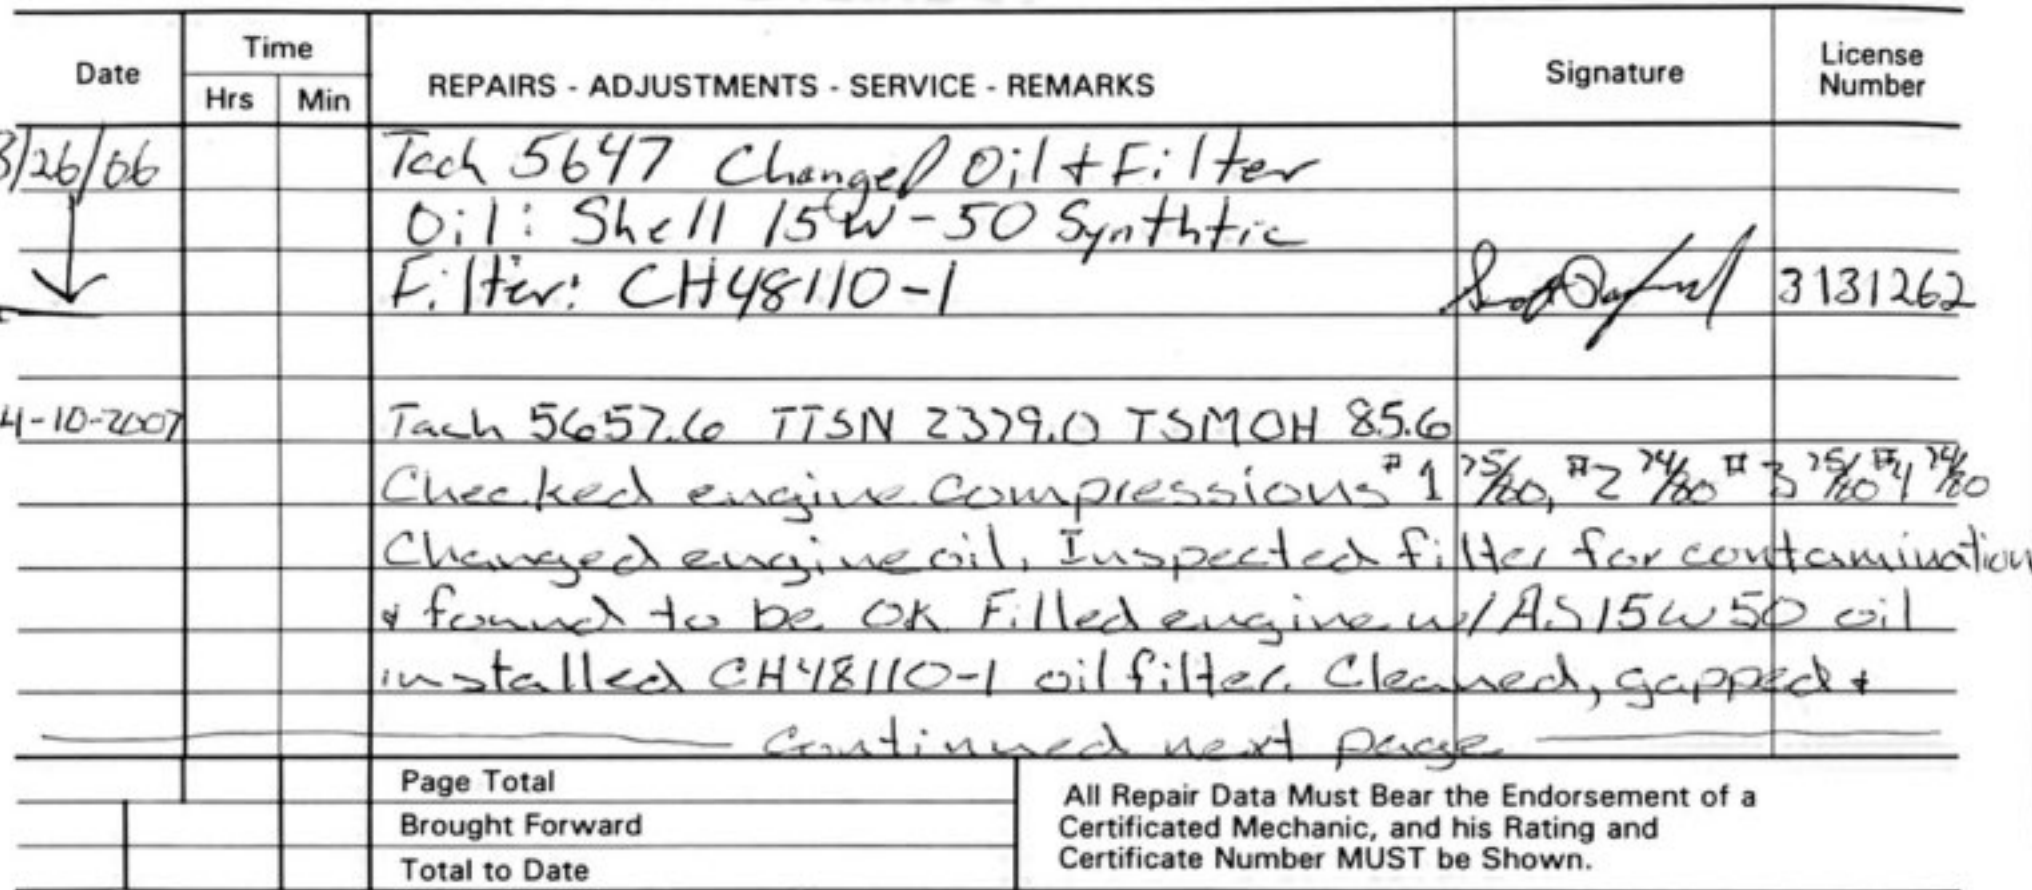 Date
Time
Hrs Min
REPAIRS - ADJUSTMENTS - SERVICE - REMARKS
Signature
License
Number
3/26/06 Tach 5647 Changed Oil + Filter
Oil: Shell 15W-50 Synthtic
Filter: CH48110-1 3131262
4-10-2007 Tach 5657.6 TTSN 2379.0 TSMOH 85.6
Checked engine compressions #1 75/80, #2 74/80 #3 75/80 #4 74/80
Changed engine oil, Inspected filter for contamination
& found to be OK Filled engine w/ AS15W50 oil
installed CH48110-1 oil filter. Cleaned, gapped &
Continued next page
Page Total
Brought Forward
Total to Date
All Repair Data Must Bear the Endorsement of a
Certificated Mechanic, and his Rating and
Certificate Number MUST be Shown.